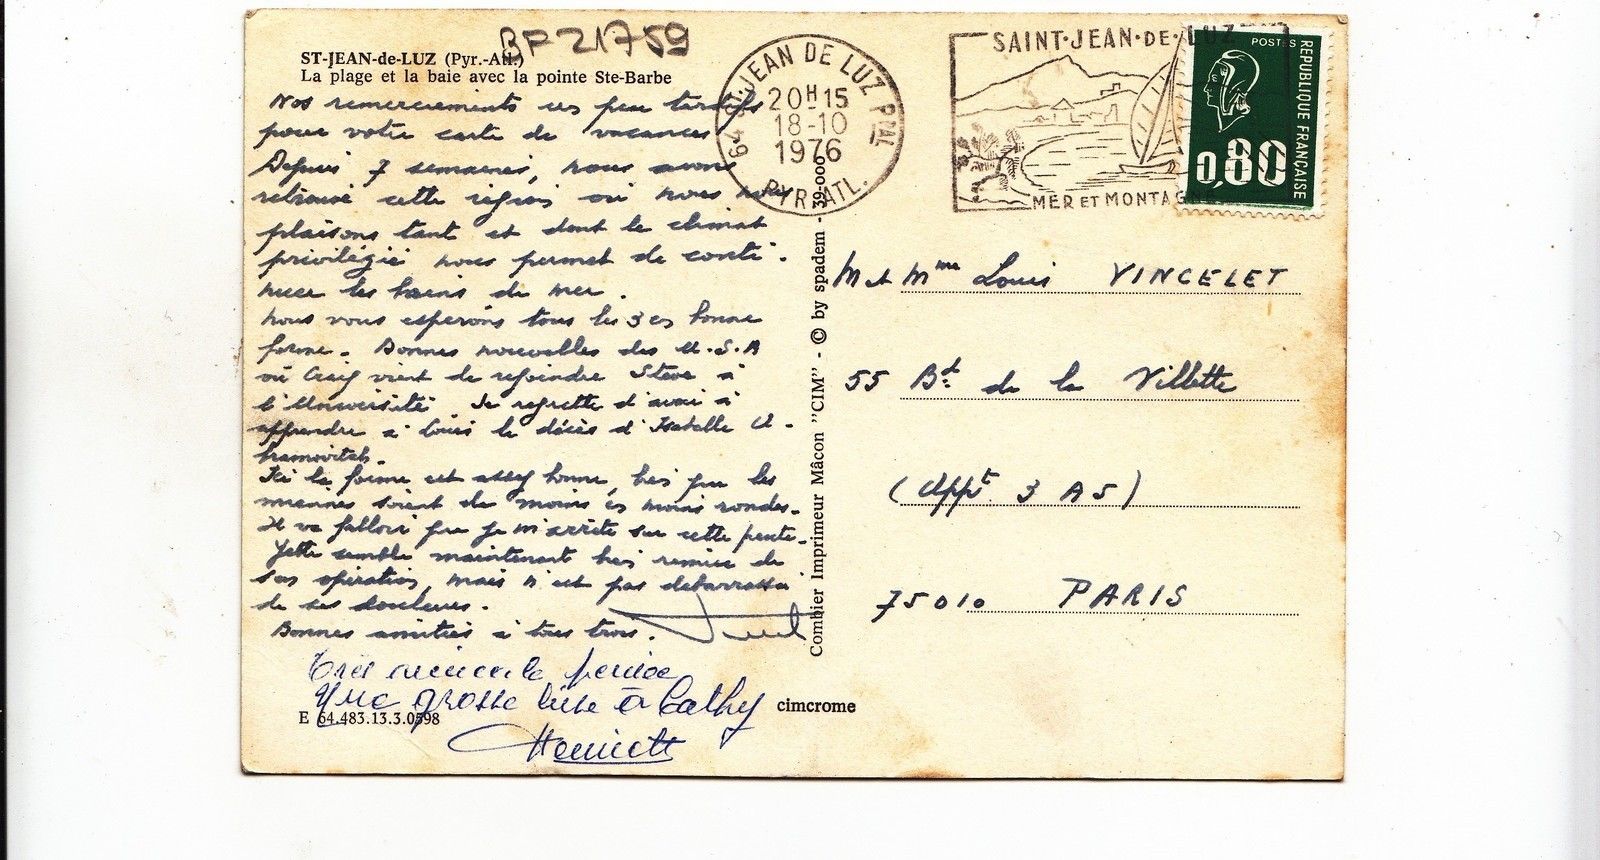 BP 21759
ST-JEAN-de-LUZ (Pyr.-Atl.)
La plage et la baie avec la pointe Ste-Barbe
Nos remerciements un peu tardifs
pour votre carte de vacances
Depuis 7 semaines, nous avons
retrouvé cette région où nous nous
plaisons tant et dont le climat
privilégié nous permet de conti-
nuer les bains de mer.
Nous vous espérons tous les 3 en bonne
forme. Bonnes nouvelles des U.S.A
où Craig vient de rejoindre Steve à
l'Université Je regrette d'avoir à
apprendre à Louis le décès d'Isabelle
Ici la forme est assez bonne, bien que les
miennes soient de moins en moins rondes.
Il va falloir que je m'arrête sur cette pente.
Yette semble maintenant bien remise de
son opération, mais n'est pas débarrassée
de ses douleurs.
Bonnes amitiés à tous trois.
pensée
Une grosse bise à Cathy
Henriette
E 64.483.13.3.0598
cimcrome
Combier Imprimeur Mâcon "CIM" - © by spadem - 39-000
64 ST-JEAN DE LUZ PPAL
20H15
18-10
1976
PYR. ATL.
SAINT·JEAN·DE·LUZ
MER ET MONTAGNE
POSTES
REPUBLIQUE FRANÇAISE
0,80
M et Mme Louis VINCELET
55 Bd de la Villette
(Appt 3 A5)
75010 PARIS